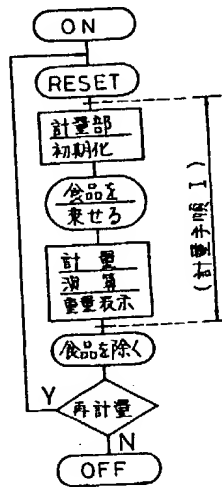 ON
RESET
計量部
初期化
食品を
乗せる
計量
演算
重量表示
(計量手順I)
食品を除く
Y
再計量
N
OFF